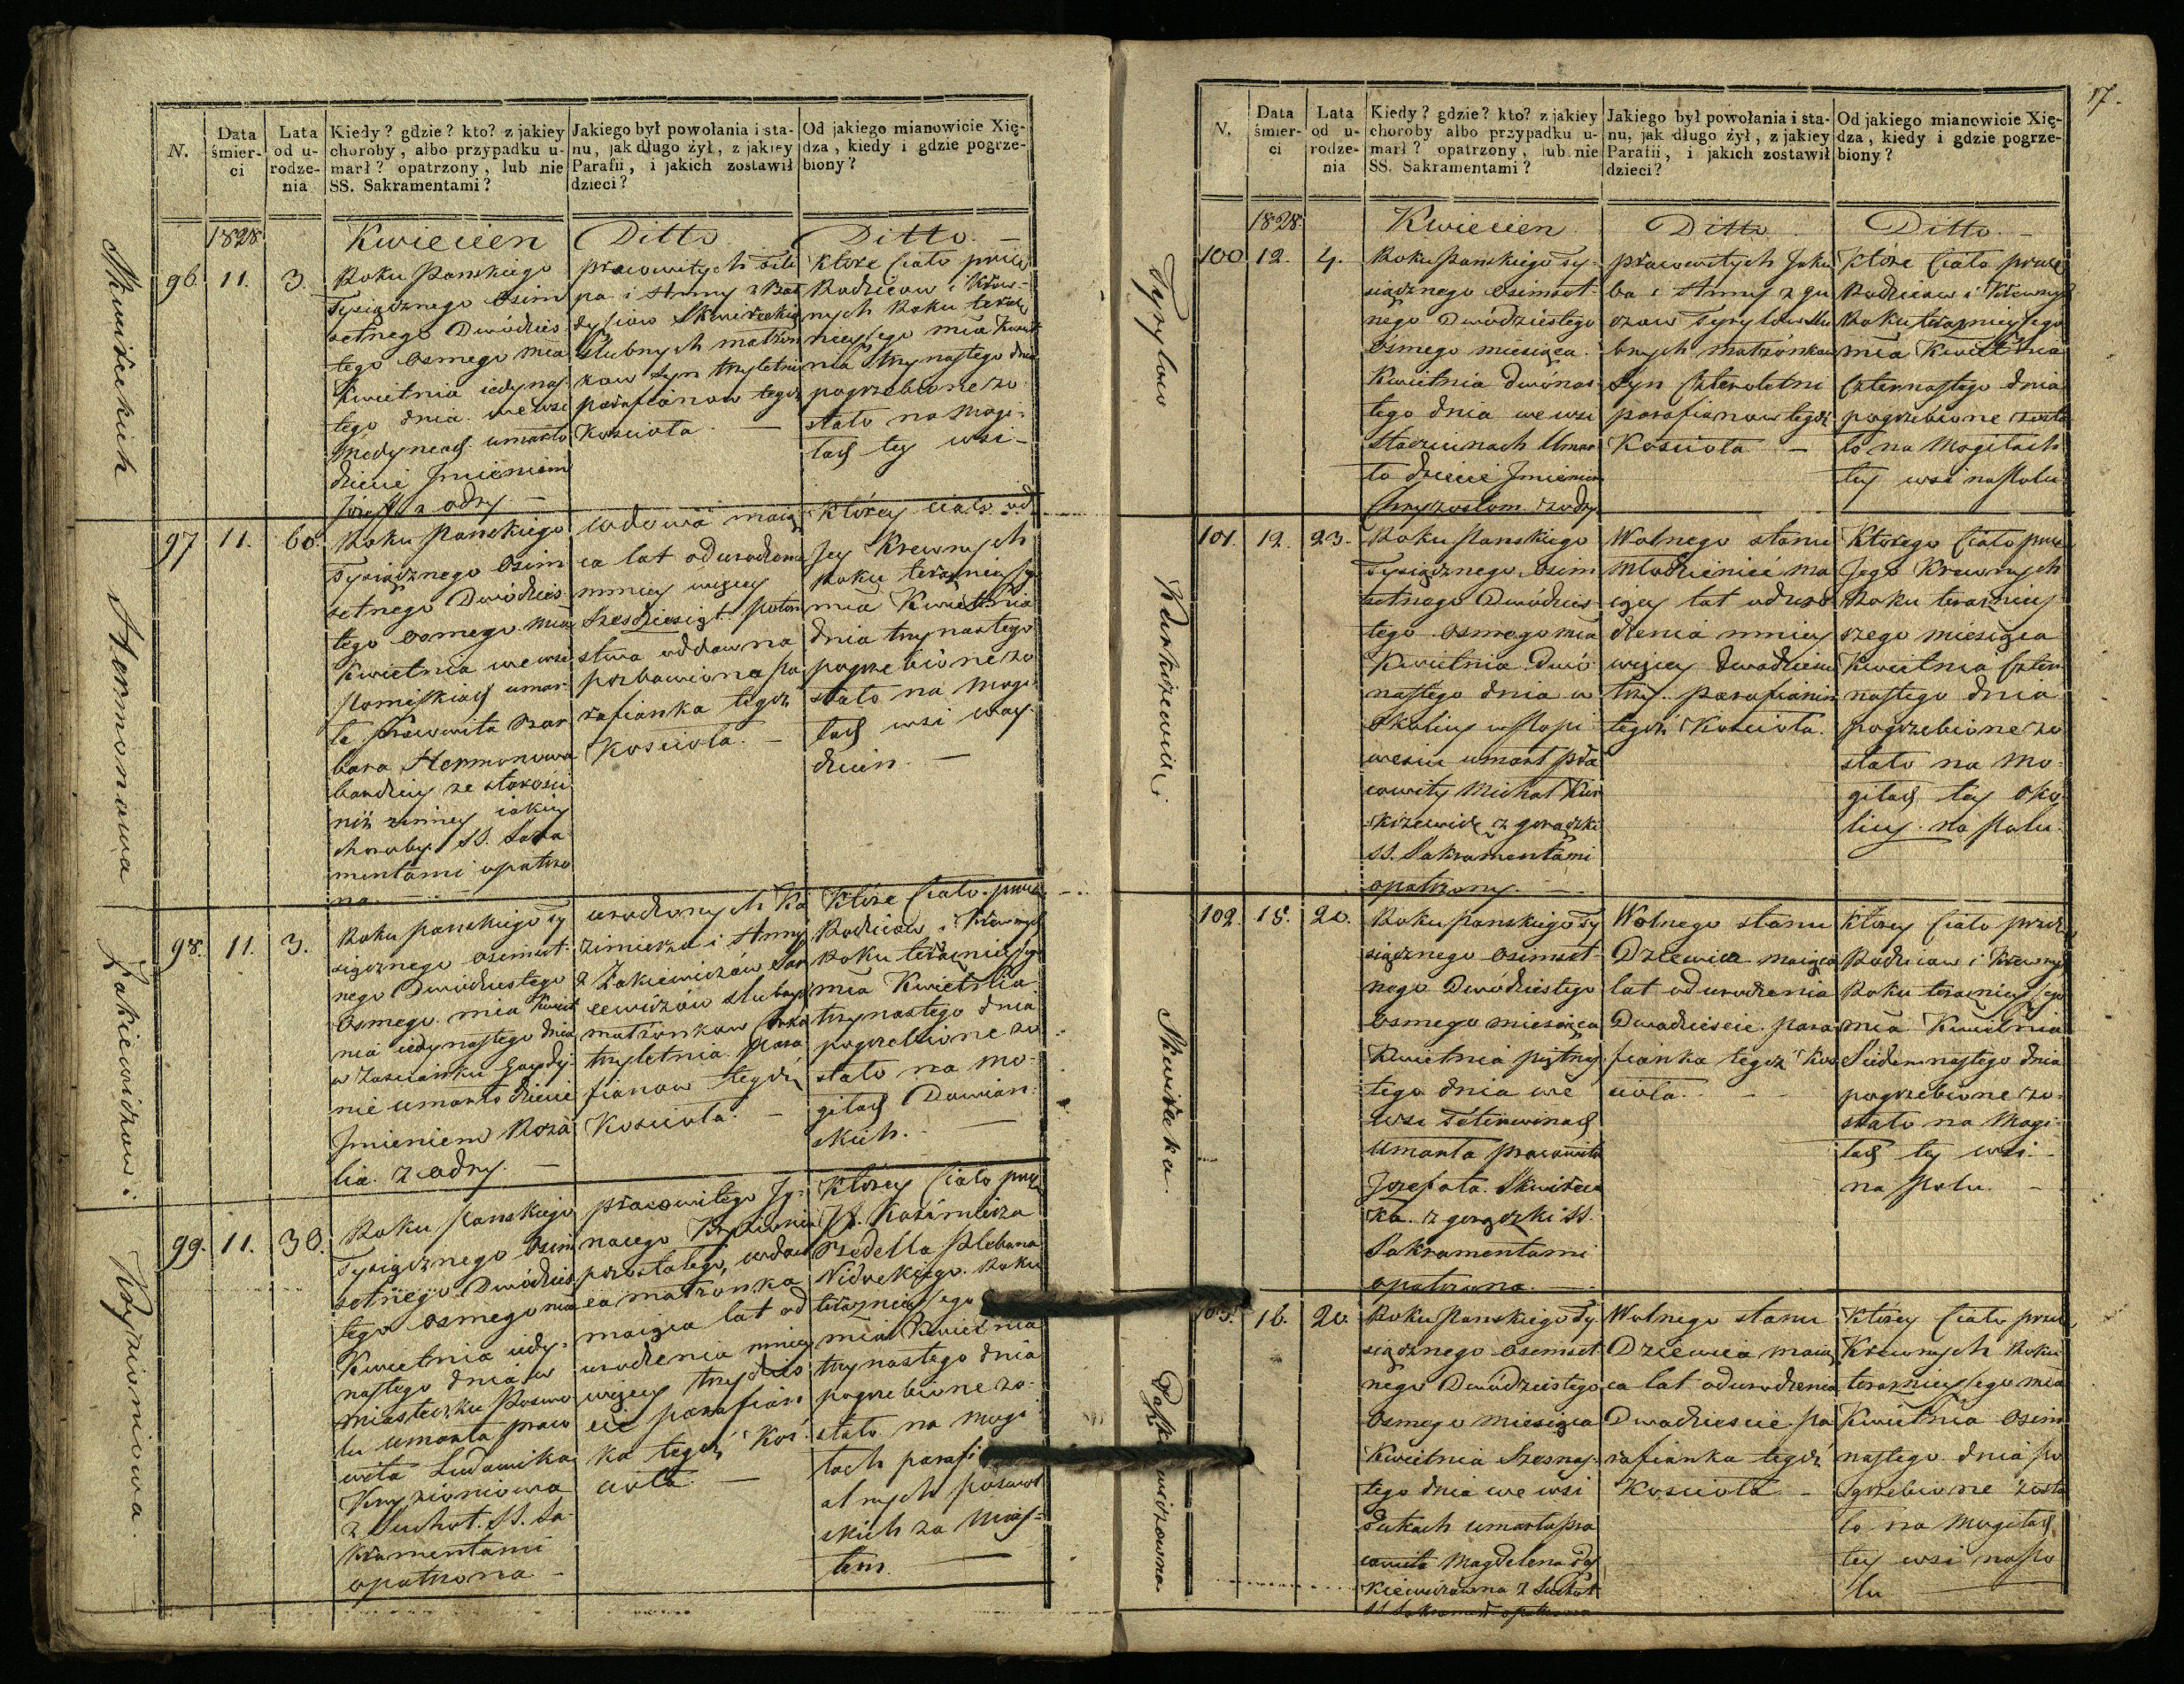 N.
Data śmier- ci
Lata od u- rodze- nia
Kiedy? gdzie? kto? z jakiey
choroby, albo przypadku u-
marł? opatrzony, lub nie
SS. Sakramentami?
Jakiego był powołania i sta-
nu, jak długo żył, z jakiey
Parafii, i jakich zostawił
dzieci?
Od jakiego mianowicie Xię-
dza, kiedy i gdzie pogrze-
biony?
1828
Kwiecien
Ditto
Ditto.
96.
11.
3.
Roku Panskiego
Tysiącznego Osim
setnego Dwódzies
tego osmego mca
Kwietnia iedynas
tego dnia we wsi
umarło
dziecie Jmieniem
Jozeff z odry.
pracowitych Fili
pa i Anny z
slubnych małżon
kow syn trzyletni
parafianow tegoż
Koscioła.
Ktore ciało przez
Rodzicow i Krew-
nych Roku teraz
nieyszego mca Kwiet
nia trzynastego dnia
pogrzebione zo
stało na mogi-
łach tey wsi
97
11.
60.
Roku Panskiego
Tysiącznego Osim
setnego Dwódzies
tego osmego mca
Kwietnia we wsi
umar
ła Pracowita Bar
bara Hermonowa
bardziey ze starosci
niż z inney iakiey
choroby SS. Sakra
mentami opatrzo
na
wdowa maią
ca lat od urodzenia
mniey więcey
Szesdziesiąt potom
stwa oddawna
pozbawiona pa
rafianka tegoż
Koscioła.
Ktorey ciało od
Jey Krewnych
Roku teraznieyszego
mca Kwietnia
dnia trzynastego
pogrzebione zo
stało na mogi
łach wsi
98.
11.
3.
Roku panskiego Ty
siącznego osimset
nego Dwódziestego
Osmego mca Kwiet
nia iedynastego dnia
w Zascianku
umarło dziecie
Jmieniem Roza
lia z odry.
urodzonych Ka
zimierza i Anny
z Zakiewiczów
slubnych
małżonkow Corka
trzyletnia para
fianow tegoż
Koscioła.
Ktore ciało przez
Rodzicow i Krewnych
Roku teraznieyszego
mca Kwietnia
trzynastego dnia
pogrzebione zo
stało na mo-
giłach
skich.
99.
11.
30.
Roku Panskiego
Tysiącznego Osim
setnego Dwódzies
tego osmego mca
Kwietnia iedy-
nastego dnia w
miasteczku Poswo
lu umarła praco
wita Ludowika
z Suchot. SS. Sa-
kramentami
opatrzona
pracowitego Jg-
nacego
pozostałego, wdow
ca małżonka
maiąca lat od
urodzenia mniey
więcey trzydzies
ci parafian
ka tegoż Kos
cioła.
Ktorey ciało przez
Kazimierza
Plebana
Roku
teraznieyszego
mca Kwietnia
trzynastego dnia
pogrzebione zo-
stało na mogi
łach parafi
alnych poswol
skich za mias-
tem.
Hermonowa
17.
N.
Data śmier- ci
Lata od u- rodze- nia
Kiedy? gdzie? kto? z jakiey
choroby albo przypadku u-
marł? opatrzony, lub nie
SS. Sakramentami?
Jakiego był powołania i sta-
nu, jak długo żył, z jakiey
Parafii, i jakich zostawił
dzieci?
Od jakiego mianowicie Xię-
dza, kiedy i gdzie pogrze-
biony?
1828.
Kwiecien
Ditto
Ditto.
100
12.
4.
Roku Panskiego Ty-
siącznego osimset-
nego Dwódziestego
Osmego miesiąca
Kwietnia dwónas
tego dnia we wsi
Umar
ło dziecie Jmieniem
z odry
pracowitych Jaku
ba i Anny z
małżonkow
Syn czteroletni
parafianow tegoż
Koscioła
Ktore ciało przez
Rodzicow i Krewnych
Roku teraznieyszego
mca Kwietnia
Czternastego dnia
pogrzebione zosta
ło na Mogiłach
tey wsi na Polu
101.
12.
23.
Roku Panskiego
Tysiącznego osim
setnego Dwódzies
tego osmego mca
Kwietnia Dwó
nastego dnia w
Okolicy
umarł pra
cowity Michał
z gorączki
SS. Sakramentami
opatrzony.
Wolnego stanu
Młodzieniec ma
iący lat od uro
dzenia mniey
więcey dwadziescia
trzy parafianin
tegoż Koscioła.
Ktorego ciało przez
Jego Krewnych
Roku terazniey
szego miesiąca
Kwietnia Czter
nastego dnia
pogrzebione zo
stało na Mo
giłach tey oko
licy na Polu.
102.
15.
20.
Roku Panskiego Ty
siącznego osimset-
nego Dwódziestego
osmego miesiąca
Kwietnia piętnas
tego dnia we
wsi
umarła pracowita
Jozefata
z gorączki SS.
Sakramentami
opatrzona.
Wolnego stanu
Dziewica maiąca
lat od urodzenia
Dwadziescie para
fianka tegoż Kos
cioła.
Ktorey ciało przez
Rodzicow i Krewnych
Roku teraznieyszego
mca Kwietnia
Siedemnastego dnia
pogrzebione zo
stało na Mogi
łach tey wsi
na Polu.
103.
16.
20.
Roku Panskiego Ty
siącznego osimset
nego Dwódziestego
osmego miesiąca
Kwietnia Szesnas
tego dnia we wsi
umarła pra
cowita Magdelena
z Suchot
SS Sakrament opatrzona
Wolnego stanu
Dziewica maią
ca lat od urodzenia
Dwadziescie pa
rafianka tegoż
Koscioła
Ktorey ciało przez
Krewnych Roku
teraznieyszego mca
Kwietnia Osim
nastego dnia po
grzebione zosta
ło na Mogiłach
tey wsi na Po
lu